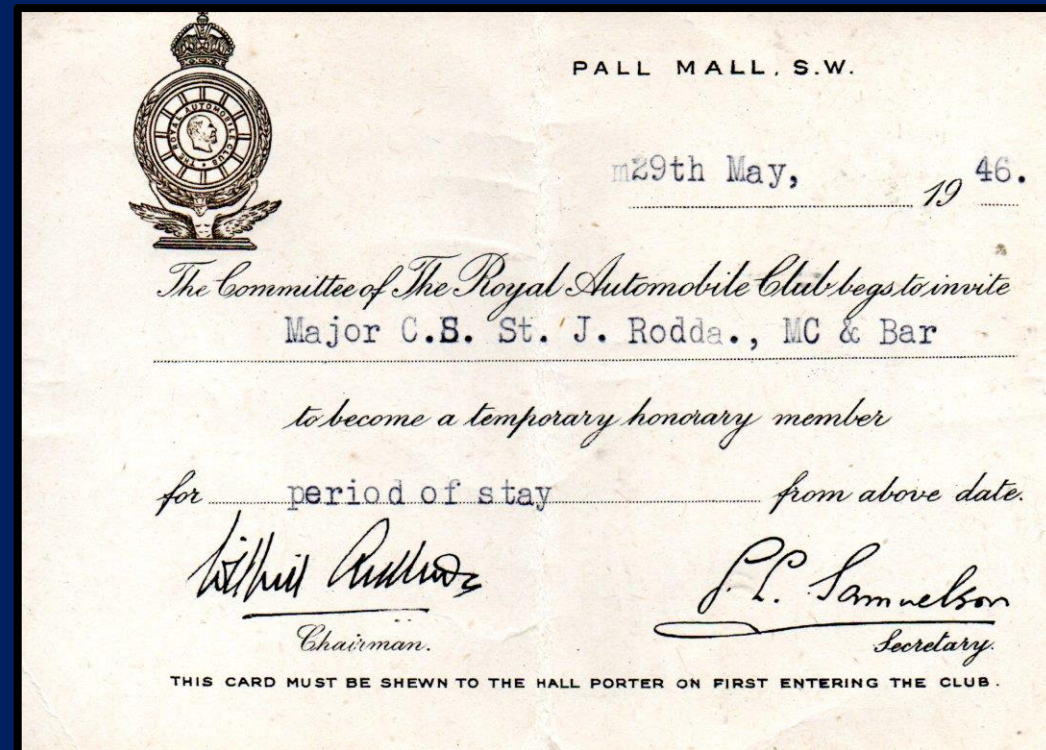 THE ROYAL AUTOMOBILE CLUB
PALL MALL, S.W.
m29th May, 1946.
The Committee of The Royal Automobile Club begs to invite
Major C.S. St. J. Rodda., MC & Bar
to become a temporary honorary member
for period of stay from above date.
S.C. Samuelson
Chairman. Secretary.
THIS CARD MUST BE SHEWN TO THE HALL PORTER ON FIRST ENTERING THE CLUB.